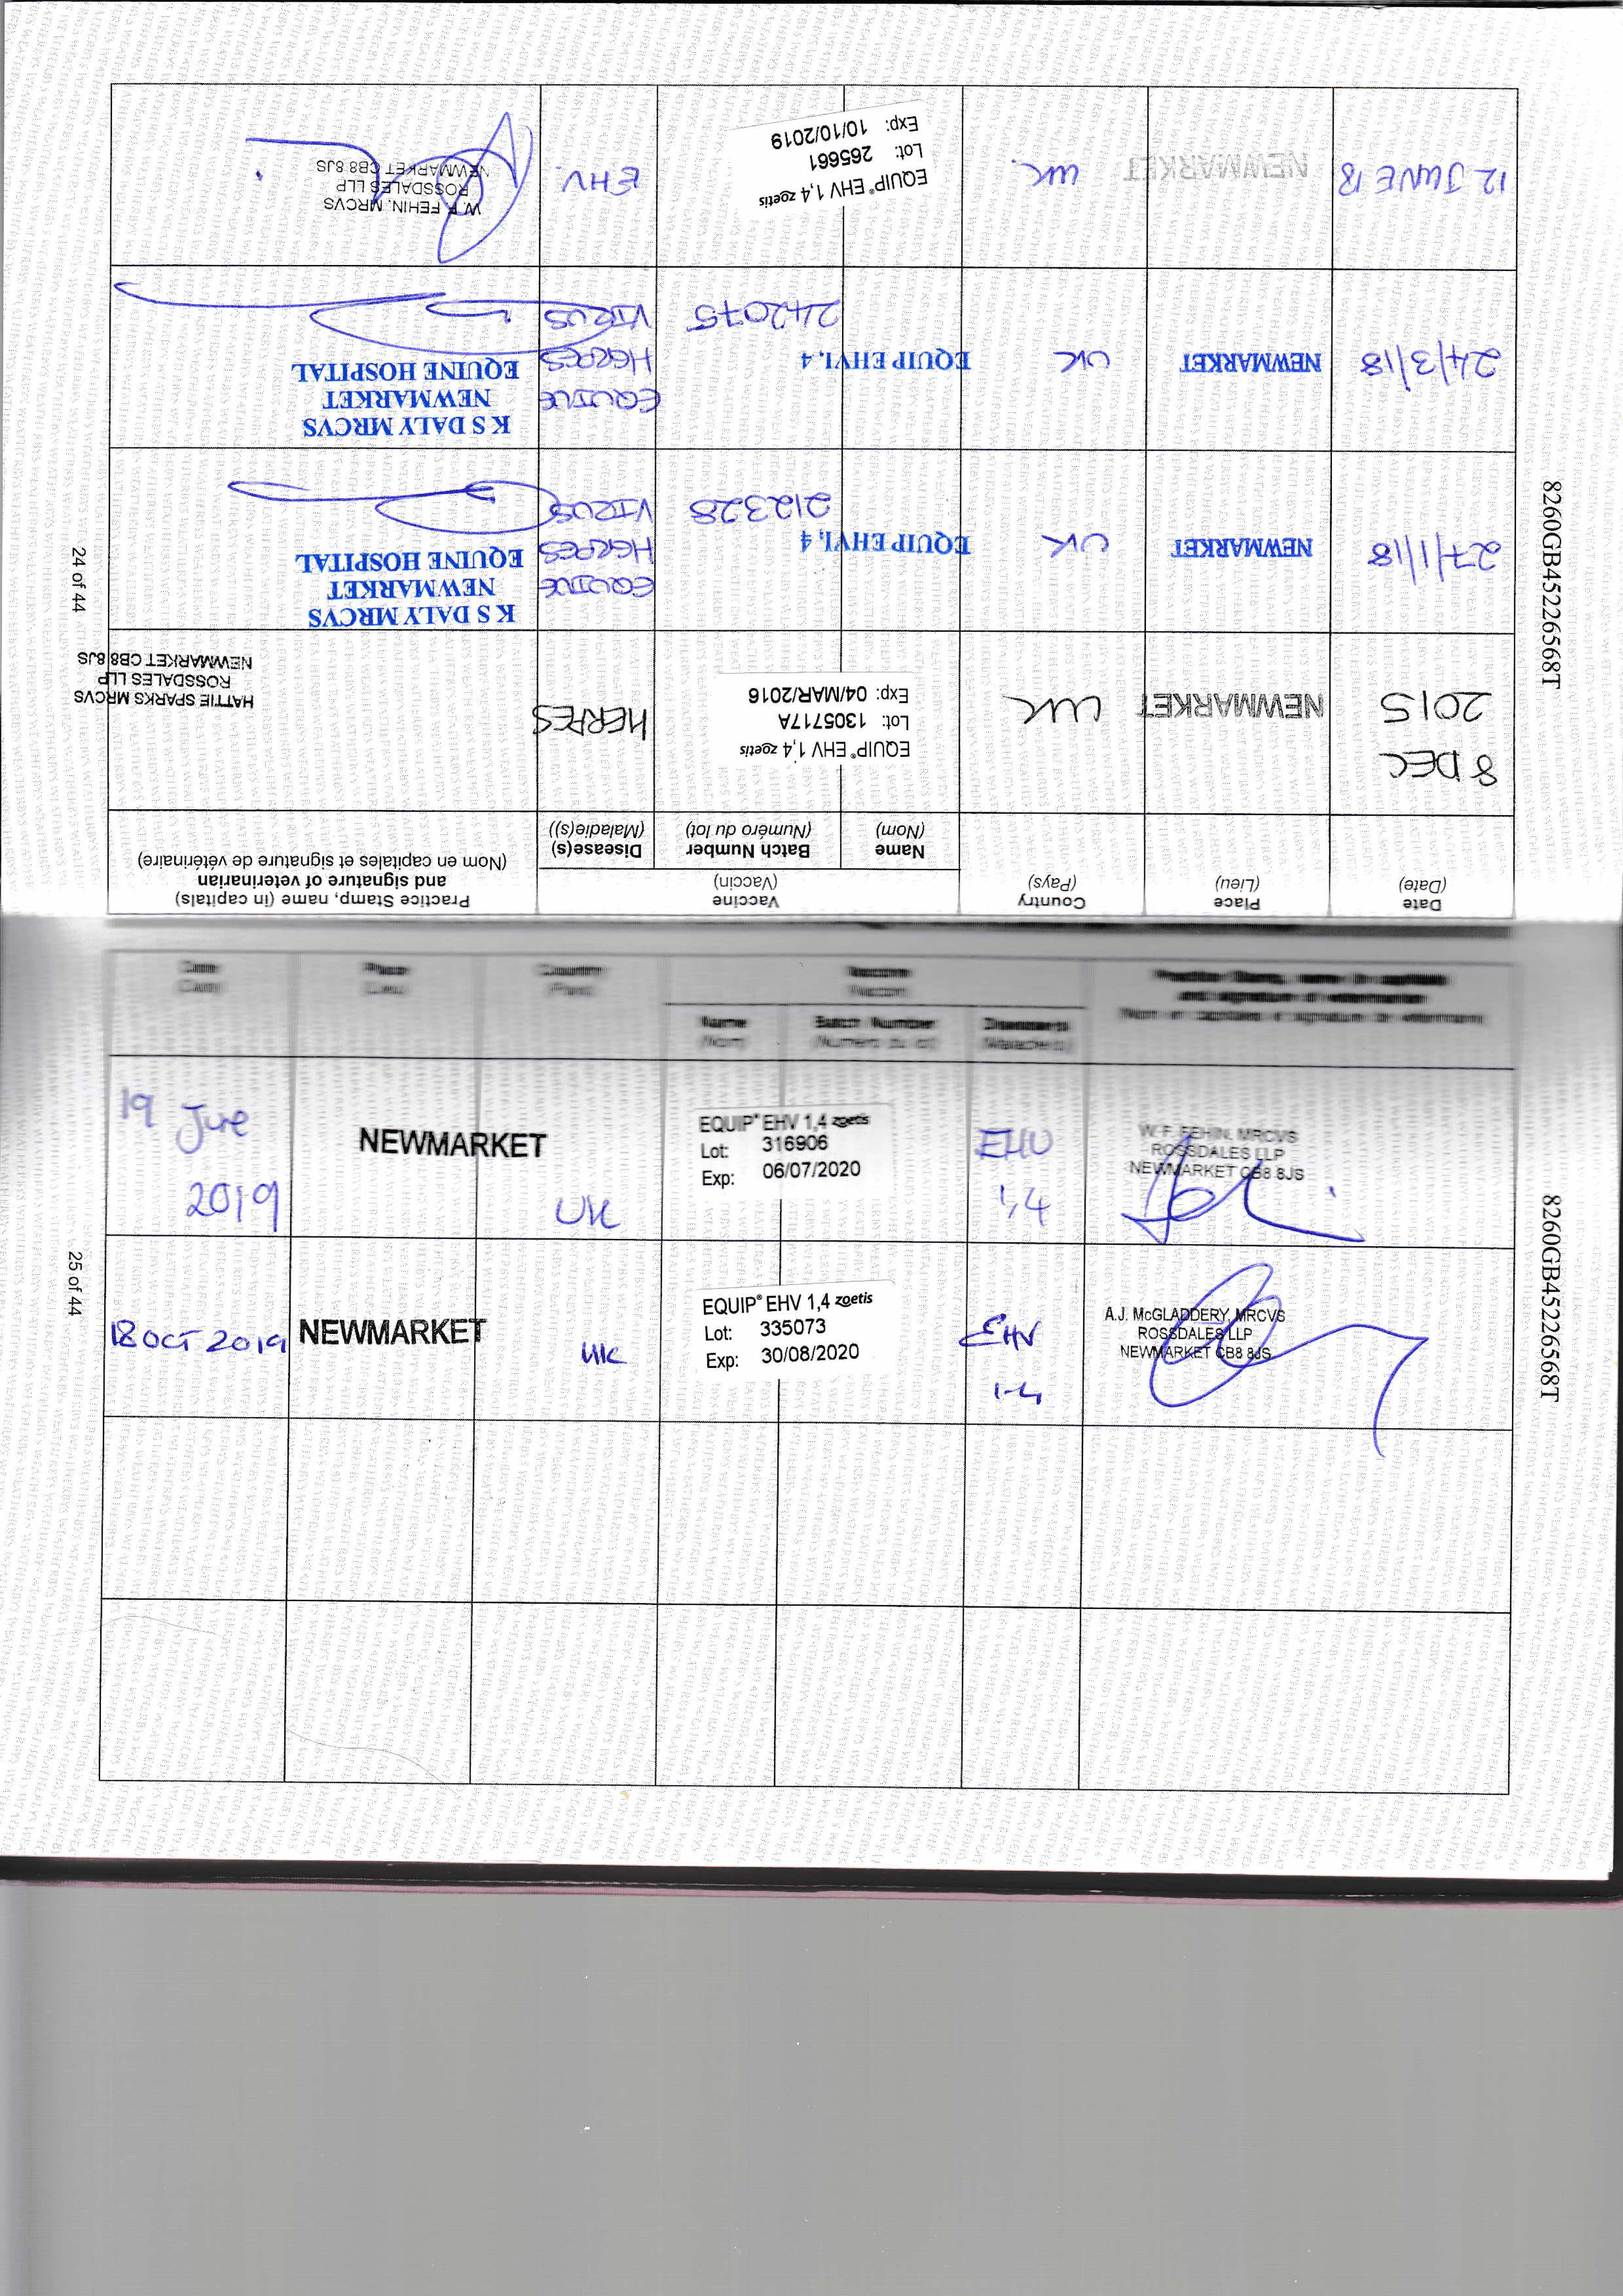 8260GB45226568T
24 of 44
Date
(Date)
Place
(Lieu)
Country
(Pays)
Vaccine
(Vaccin)
Name
(Nom)
Batch Number
(Numéro du lot)
Disease(s)
(Maladie(s))
Practice Stamp, name (in capitals)
and signature of veterinarian
(Nom en capitales et signature de vétérinaire)
8 DEC
2015
NEWMARKET
UK
EQUIP® EHV 1,4 zoetis
Lot: 130571 7A
Exp: 04/MAR/2016
HERPES
HATTIE SPARKS MRCVS
ROSSDALES LLP
NEWMARKET CB8 8JS
27/1/18
NEWMARKET
UK
EQUIP EHV1, 4
212328
EQUINE
HERPES
VIRUS
K S DALY MRCVS
NEWMARKET
EQUINE HOSPITAL
24/3/18
NEWMARKET
UK
EQUIP EHV1, 4
242075
EQUINE
HERPES
VIRUS
K S DALY MRCVS
NEWMARKET
EQUINE HOSPITAL
12 JUNE 18
NEWMARKET
UK
EQUIP® EHV 1,4 zoetis
Lot: 265661
Exp: 10/10/2019
EHV
W. F. FEHIN, MRCVS
ROSSDALES LLP
NEWMARKET CB8 8JS
Date
(Date)
Place
(Lieu)
Country
(Pays)
Vaccine
(Vaccin)
Name
(Nom)
Batch Number
(Numéro du lot)
Disease(s)
(Maladie(s))
Practice Stamp, name (in capitals)
and signature of veterinarian
(Nom en capitales et signature de vétérinaire)
19 June
2019
NEWMARKET
UK
EQUIP® EHV 1,4 zoetis
Lot: 316906
Exp: 06/07/2020
EHV
1,4
W. F. FEHIN, MRCVS
ROSSDALES LLP
NEWMARKET CB8 8JS
18 OCT 2019
NEWMARKET
UK
EQUIP® EHV 1,4 zoetis
Lot: 335073
Exp: 30/08/2020
EHV
1-4
A.J. McGLADDERY, MRCVS
ROSSDALES LLP
NEWMARKET CB8 8JS
25 of 44
8260GB45226568T